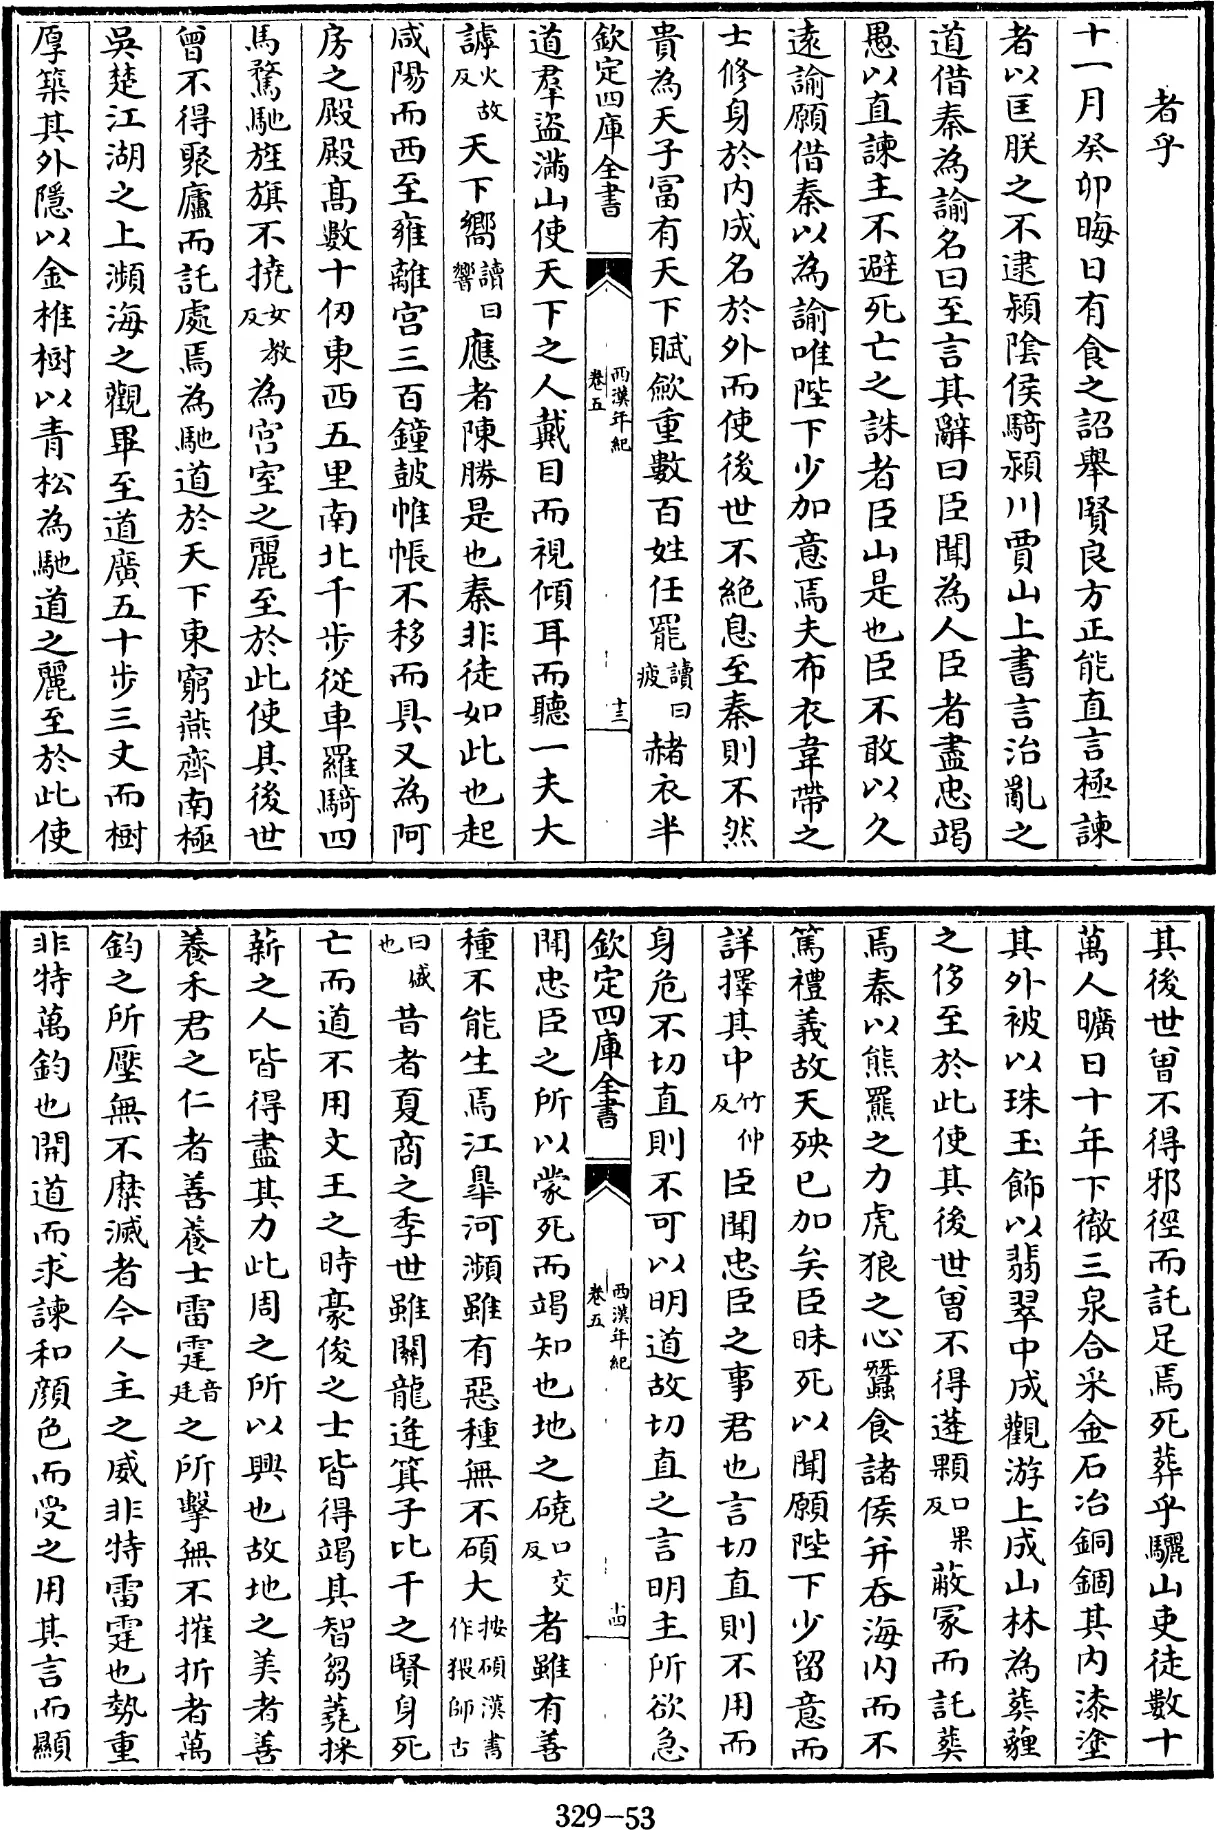 者乎
十一月癸卯晦日有食之詔舉賢良方正能直言極諫
者以匡朕之不逮潁陰侯騎潁川賈山上書言治亂之
道借秦為諭名曰至言其辭曰臣聞為人臣者盡忠竭
愚以直諫主不避死亡之誅者臣山是也臣不敢以久
遠諭願借秦以為諭唯陛下少加意焉夫布衣韋帶之
士修身於内成名於外而使後世不絶息至秦則不然
貴為天子富有天下賦歛重數百姓任罷讀曰疲赭衣半
欽定四庫全書 西漢年紀 卷五 十三
道羣盜滿山使天下之人戴目而視傾耳而聽一夫大
謼火故反天下嚮讀曰響應者陳勝是也秦非徒如此也起
咸陽而西至雍離宫三百鐘鼓帷帳不移而具又為阿
房之殿殿髙數十仞東西五里南北千步從車羅騎四
馬騖馳旌旗不撓女教反為宫室之麗至於此使其後世
曾不得聚廬而託處焉為馳道於天下東窮燕齊南極
吳楚江湖之上瀕海之觀畢至道廣五十步三丈而樹
厚築其外隱以金椎樹以青松為馳道之麗至於此使
其後世曾不得邪徑而託足焉死葬乎驪山吏徒數十
萬人曠日十年下徹三泉合采金石冶銅錮其内漆塗
其外被以珠玉飾以翡翠中成觀游上成山林為葬薶
之侈至於此使其後世曾不得蓬顆口果反蔽冢而託葬
焉秦以熊羆之力虎狼之心蠶食諸侯并吞海内而不
篤禮義故天殃已加矣臣昧死以聞願陛下少留意而
詳擇其中竹仲反臣聞忠臣之事君也言切直則不用而
身危不切直則不可以明道故切直之言明主所欲急
欽定四庫全書 西漢年紀 卷五 十四
聞忠臣之所以蒙死而竭知也地之磽口交反者雖有善
種不能生焉江臯河瀕雖有惡種無不碩大按碩漢書作猥師古
曰盛也昔者夏商之季世雖關龍逄箕子比干之賢身死
亡而道不用文王之時豪俊之士皆得竭其智芻蕘採
薪之人皆得盡其力此周之所以興也故地之美者善
養禾君之仁者善養士雷霆音廷之所擊無不摧折者萬
鈞之所壓無不糜滅者今人主之威非特雷霆也勢重
非特萬鈞也開道而求諫和顔色而受之用其言而顯
329-53